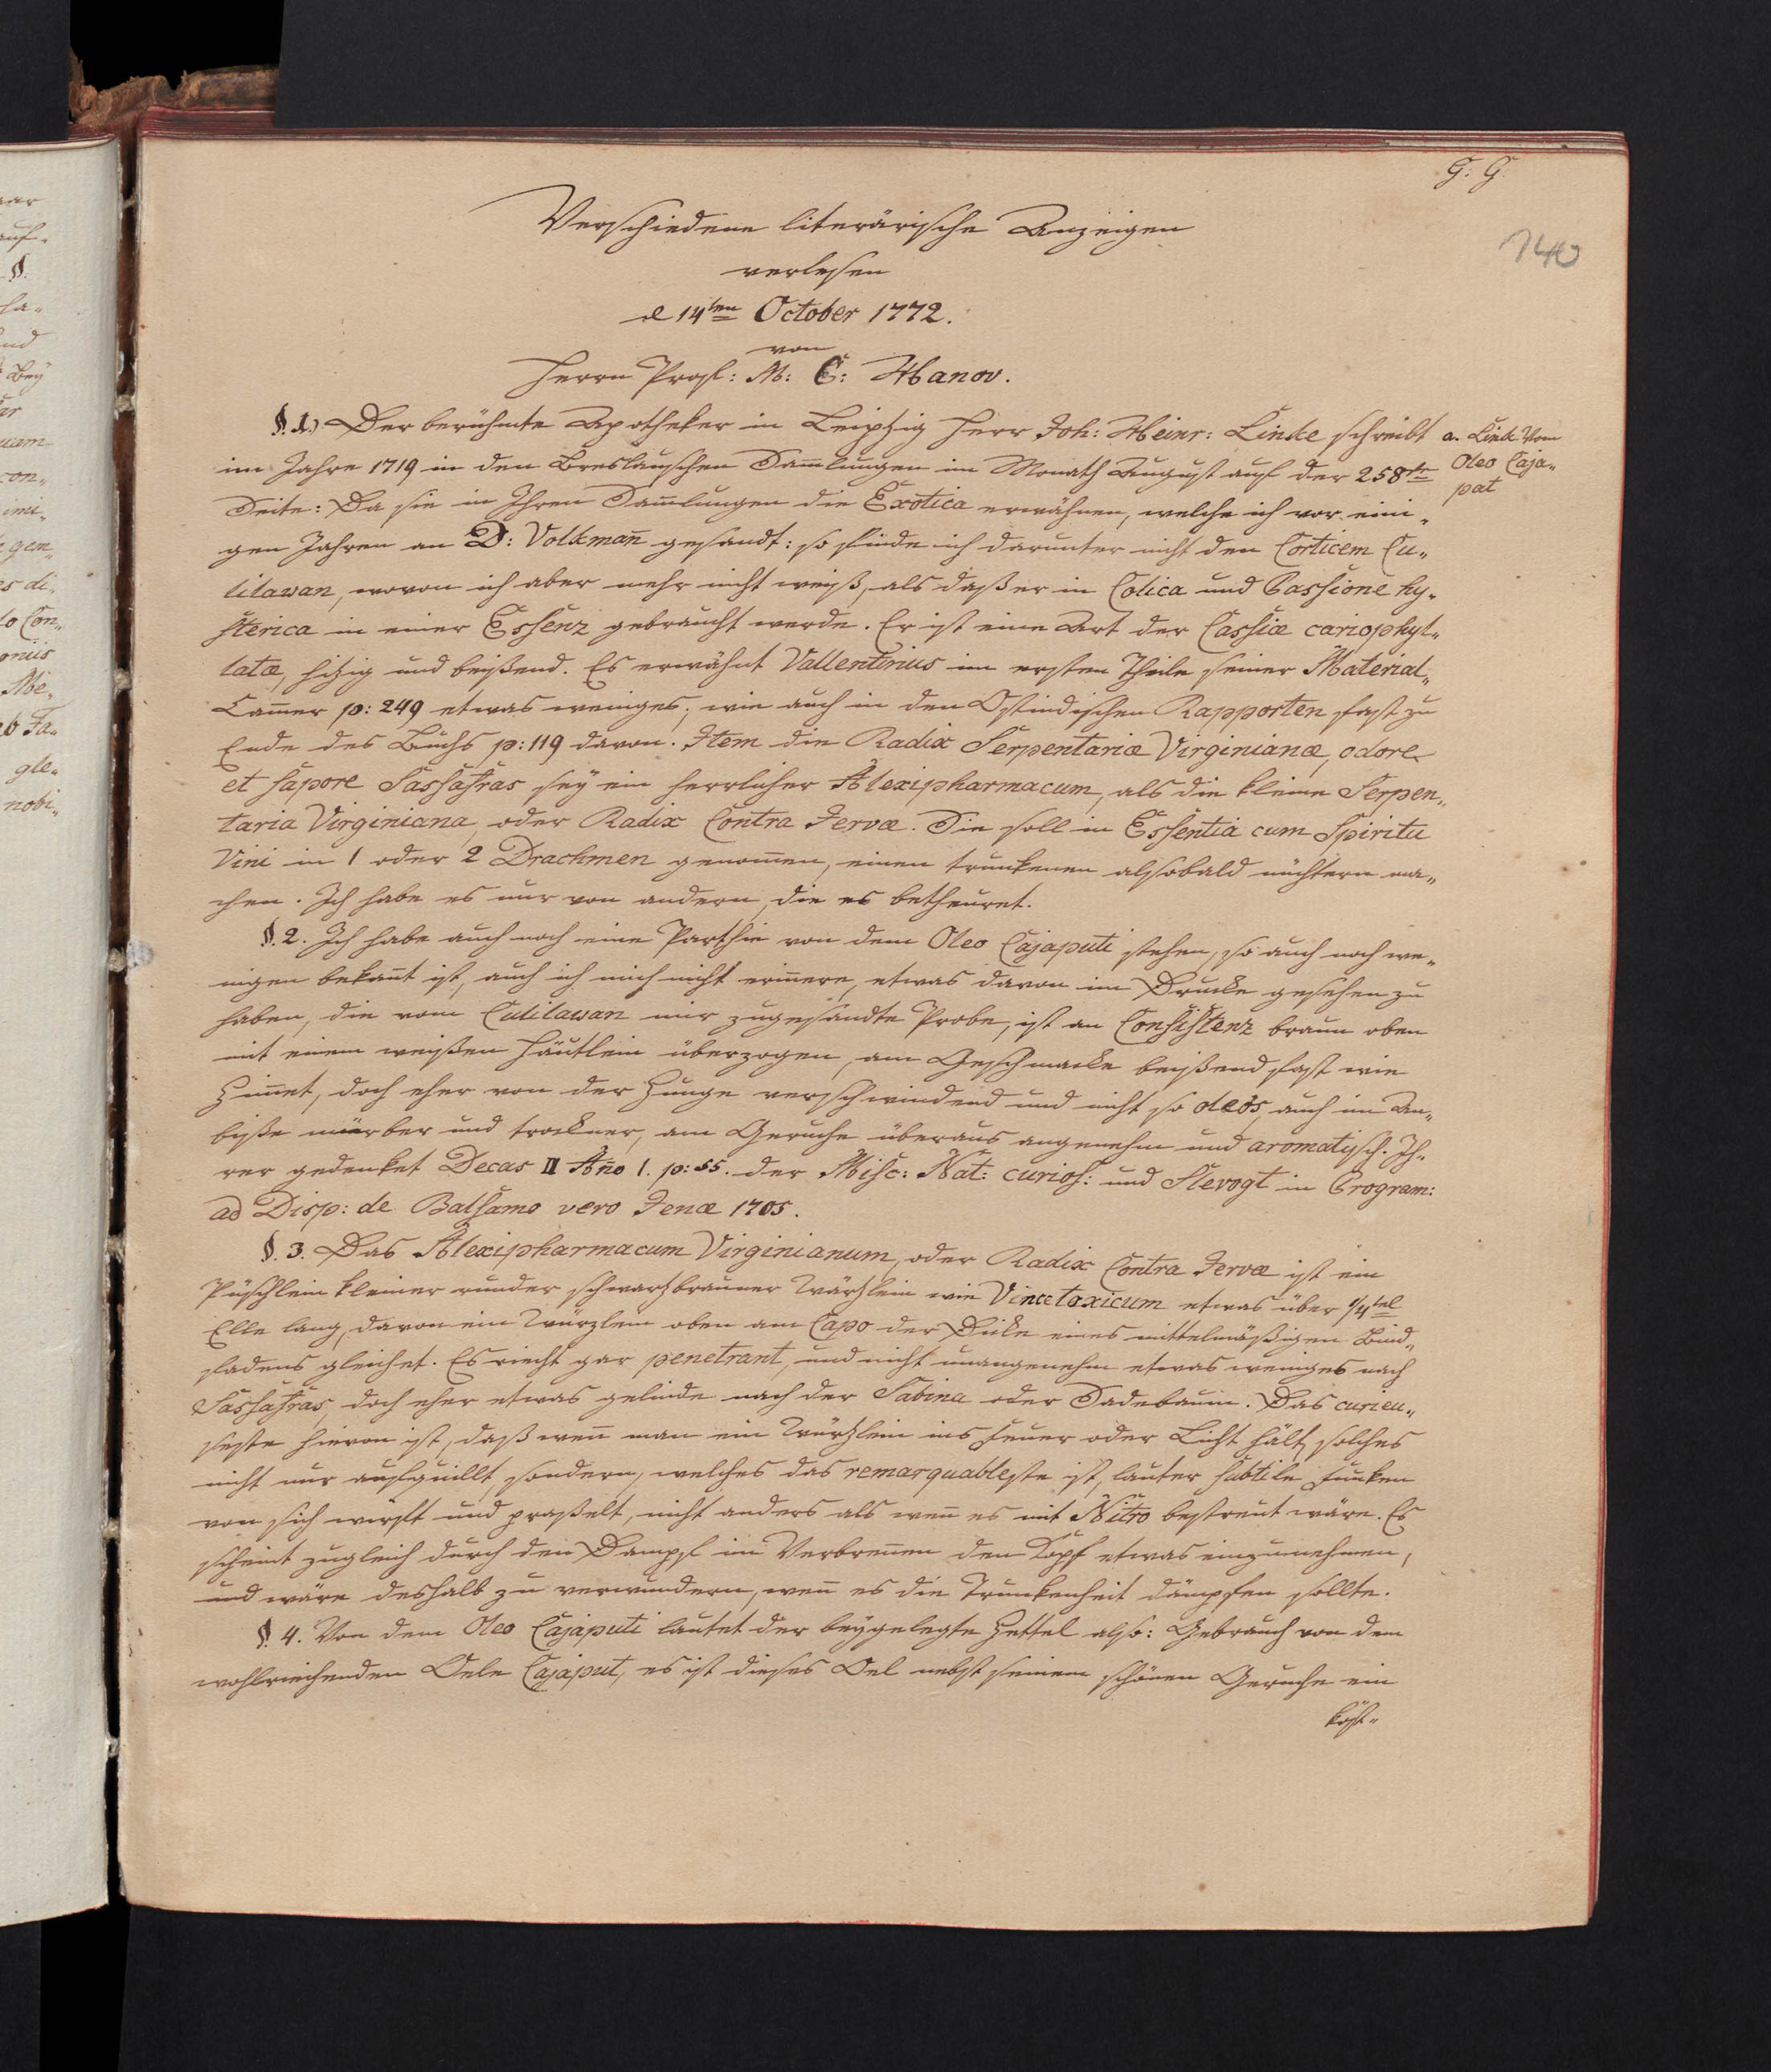 G. G.
140
Verschiedene literärische Anzeigen
verlesen
d 14ten October 1772.
von
Herrn Prof: M: C: Hanov.
§. 1.) Der berühmte Apotheker in Leipzig Herr Joh: Heinr: Linke schreibt
a. Link Vom
Oleo Caja„
pat
im Jahre 1719 in den Breslauschen Sam̄lungen im Monath August auf der 258ste
Seite: Da sie in Ihren Sam̄lungen die Exotica erwähnen, welche ich vor eini„
gen Jahren an D: Volkman̄ gesandt: so finde ich darunter nicht den Corticem Cu„
lilawan, wovon ich aber mehr nicht weiß, als daß er in Colica und Passione hy„
sterica in einer Essenz gebraucht werde. Er ist eine Art der Cassiæ cariophyl„
latæ, hitzig und beißend. Es erwähnt Vallentinius im ersten Theile seiner Material„
Cam̄er p: 249 etwas weniges; wie auch in den Ostindischen Rapporten fast zu
Ende des Buchs p: 119 davon. Item die Radix Serpentariæ Virginianæ, odore
et sapore Sassafras sey ein herrlicher Alexipharmacum, als die kleine Serpen„
taria Virginiana, oder Radix Contra Jervæ. Sie soll in Essentia cum Spiritu
Vini in 1 oder 2 Drachmen genom̄en, einen trunkenen alsobald nüchtern ma„
chen. Ich habe es nur von andern, die es betheuret.
§. 2. Ich habe auch noch eine Parthie von dem Oleo Cajaputi stehen, so auch noch we„
nigen bekan̄t ist, auch ich mich nicht erin̄ere, etwas davon im Drucke gesehen zu
haben, die vom Culilawan mir zugesandte Probe, ist an Consistenz braun oben
mit einem weißen Häutlein überzogen, am Geschmacke beißend fast wie
Zim̄et, doch eher von der Zunge verschwindend und nicht so oleös, auch im An„
biße mürber und trockner, am Geruche überaus angenehm und aromatisch. Ih„
rer gedenket Decas II Año 1. p: 55. der Misc: Nat: curios: und Slevogt in Program:
ad Disp: de Balsamo vero Jenæ 1705.
§. 3. Das Alexipharmacum Virginianum, oder Radix Contra Jervæ ist ein
Püschlein kleiner runder schwartzbrauner Würzlein wie Vincetoxicum etwas über 1/4tel
Elle lang, davon ein Würzlein oben am Capo der Dicke eines mittelmäßigen Bind„
fadens gleichet. Es riecht gar penetrant, und nicht unangenehm etwas weniges nach
Sassafras, doch eher etwas gelinde nach der Sabina oder Sadebaum. Das curieu„
seste hievon ist, daß wen̄ man ein Würzlein ins Feuer oder Licht hält, solches
nicht nur aufquillt, sondern, welches das remarquableste ist, lauter subtile Funken
von sich wirft und praßelt, nicht anders als wen̄ es mit Nitro bestreut wäre. Es
scheint zugleich durch den Dampf im Verbren̄en den Kopf etwas einzunehmen,
und wäre deshalb zu verwundern, wen̄ es die Trunkenheit dämpfen sollte.
§. 4. Von dem Oleo Cajaputi lautet der beygelegte Zettel also: Gebrauch von dem
wohlriechenden Oele Cajaput, es ist dieses Oel nebst seinem schönen Geruche ein
köst„